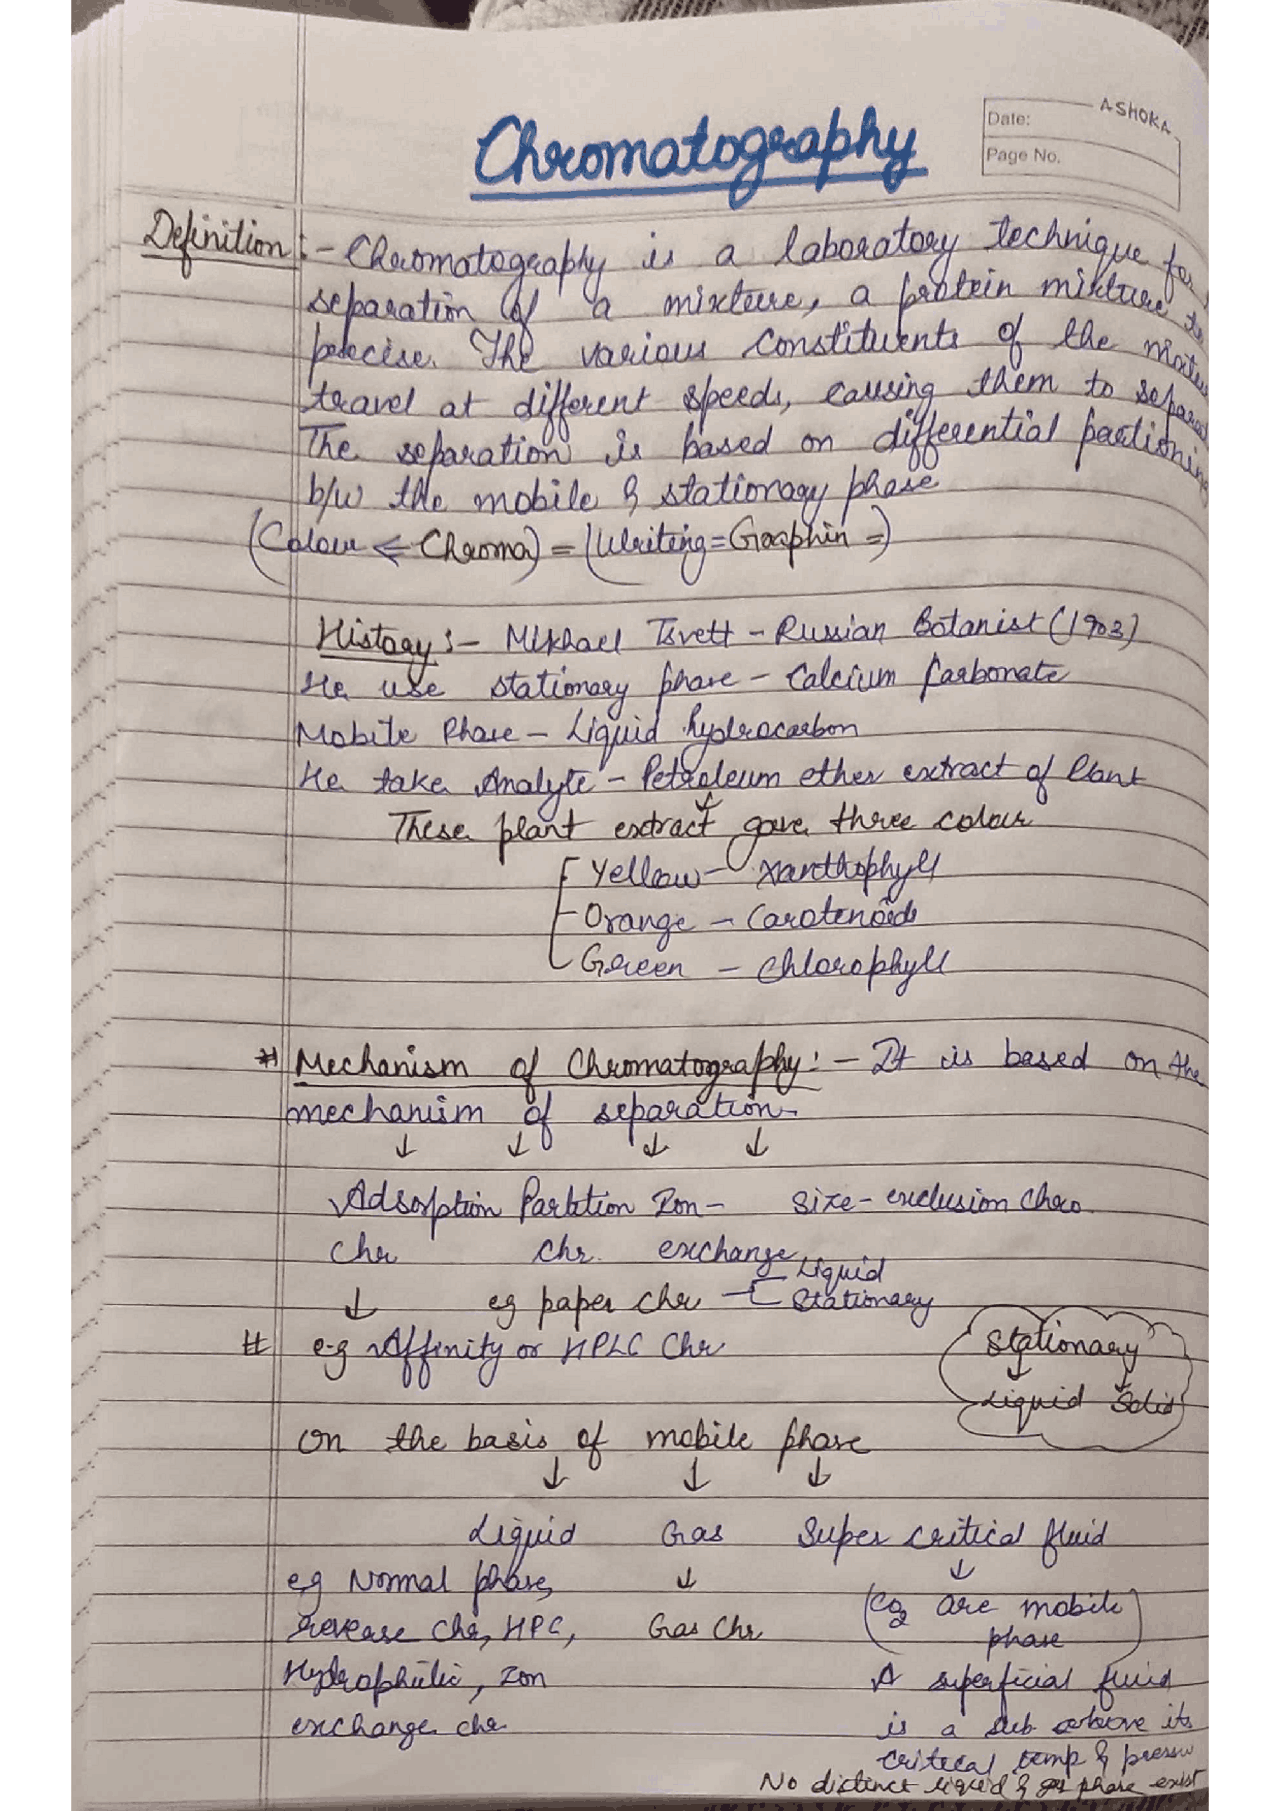 Chromatography
ASHOKA
Date:
Page No.
Definition :- Chromatography is a laboratory technique for
separation of a mixture, a protein mixture to
precise. The various constituents of the
travel at different speeds, causing them to
The separation is based on differential partionin
b/w the mobile & stationary phase
(Colour ⇐ Chroma) = (Writing = Graphin =)
History :- Mikhael Tsvett - Russian Botanist (1903)
He use stationary phase - Calcium Carbonate
Mobile Phase - Liquid hydrocarbon
He take Analyte - Petroleum ether extract of Plant
↓
These plant extract gave three colour
Yellow - Xanthophyll
Orange - Carotenoids
Green - Chlorophyll
* Mechanism of Chromatography :- It is based on the
mechanism of separation
↓ ↓ ↓ ↓
Adsorption Partition Ion- Size-exclusion Chro.
Chr Chr. exchange
Liquid
↓ eg paper chr Stationary
# e.g Affinity or HPLC Chr
Stationary
↓ ↓
Liquid Solid
On the basis of mobile phase
↓ ↓ ↓
Liquid Gas Super critical fluid
eg Normal phase, ↓ ↓
revease chr, HPC, Gas Chr (CO2 are mobile
phase)
Hydrophilic, Ion A superficial fluid
exchange chr is a sub above its
critical temp & pressu
No distinct liquid & gas phase exist